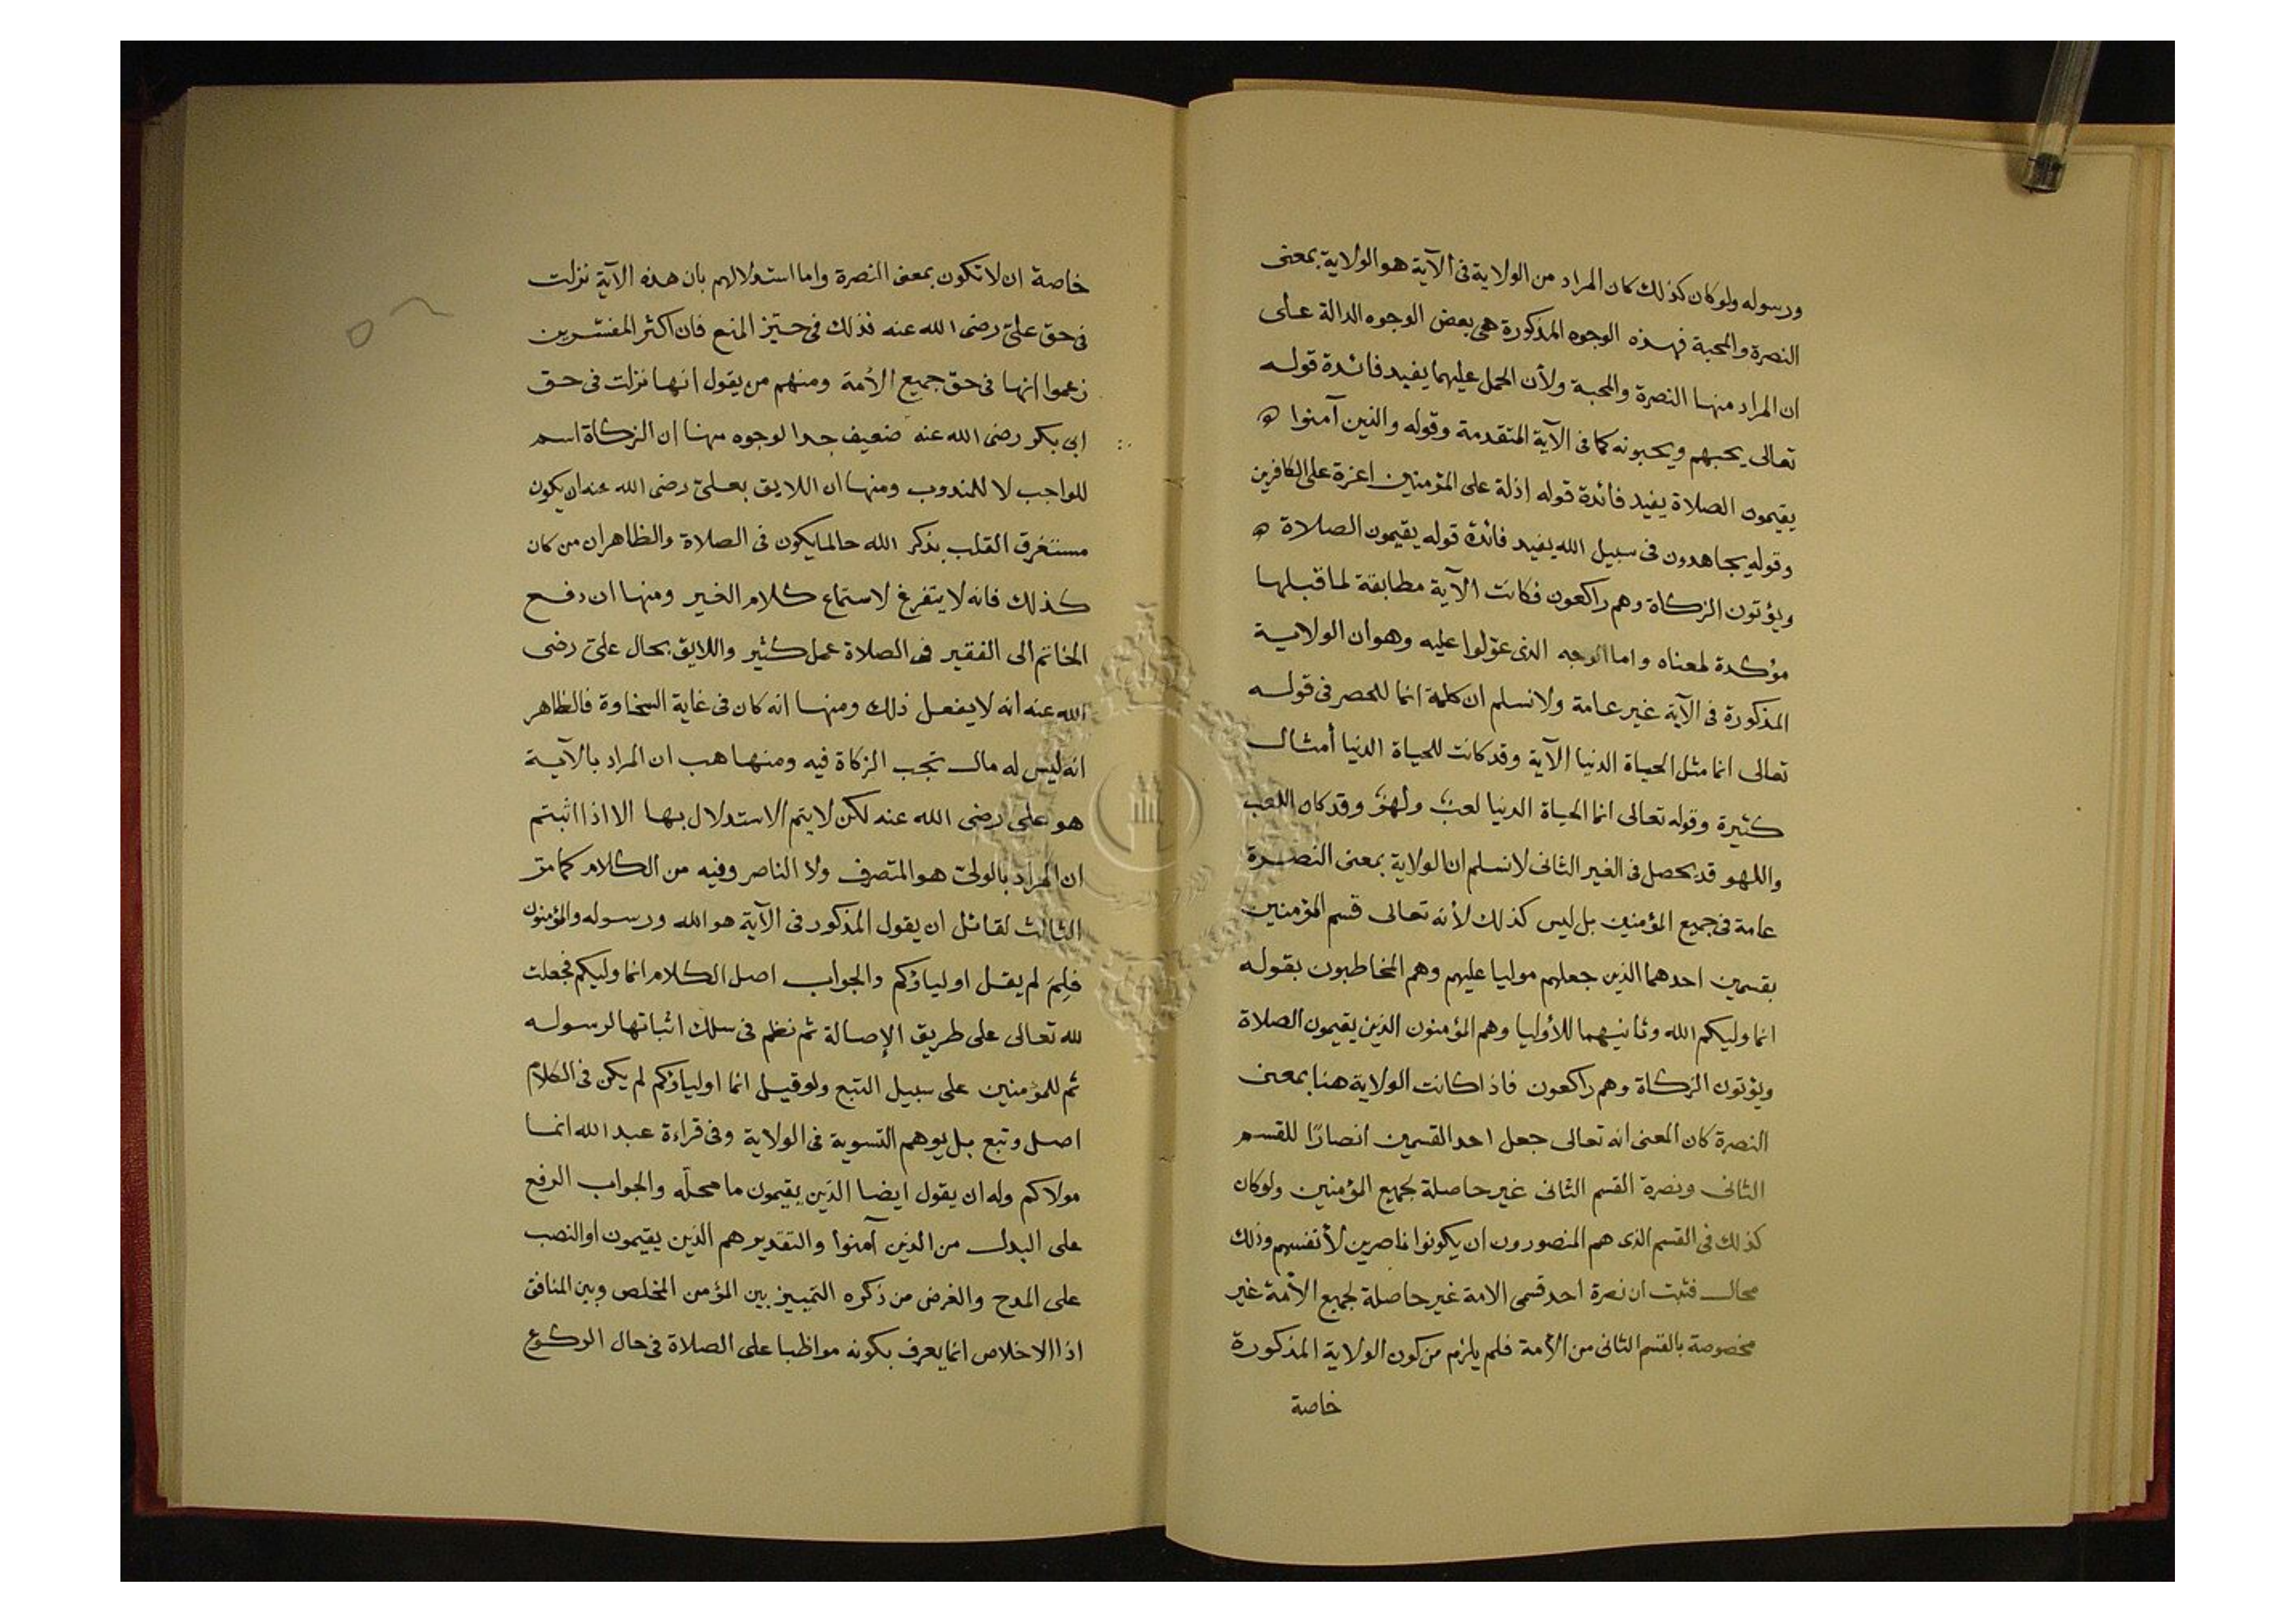 ورسوله ولو كان كذلك كان المراد من الولاية فى الآية هو الولاية بمعنى
النصرة والمحبة فهذه الوجوه المذكورة هى بعض الوجوه الدالة على
ان المراد منها النصرة والمحبة ولأن الحمل عليهما يفيد فائدة قوله
تعالى يحبهم ويحبونه كما فى الآية المتقدمة وقوله والذين آمنوا
يقيمون الصلاة يفيد فائدة قوله اذلة على المؤمنين اعزة على الكافرين
وقوله يجاهدون فى سبيل الله يفيد فائدة قوله يقيمون الصلاة
ويؤتون الزكاة وهم راكعون فكانت الآية مطابقة لما قبلها
مؤكدة لمعناه واما الوجه الذى عوّلوا عليه وهو ان الولاية
المذكورة فى الآية غير عامة ولا نسلم ان كلمة انما للحصر فى قوله
تعالى انما مثل الحياة الدنيا الآية وقد كانت للحياة الدنيا أمثال
كثيرة وقوله تعالى انما الحياة الدنيا لعبٌ ولهوٌ وقد كان اللعب
واللهو قد يحصل فى الغير الثانى لا نسلم ان الولاية بمعنى النصرة
عامة فى جميع المؤمنين بل ليس كذلك لأنه تعالى قسم المؤمنين
بقسمين احدهما الذين جعلهم موليا عليهم وهم المخاطبون بقوله
انما وليكم الله وثانيهما للأوليا وهم المؤمنون الذين يقيمون الصلاة
ويؤتون الزكاة وهم راكعون فاذا كانت الولاية هنا بمعنى
النصرة كان المعنى انه تعالى جعل احد القسمين انصارًا للقسم
الثانى ونصرة القسم الثانى غير حاصلة لجميع المؤمنين ولو كان
كذلك فى القسم الذى هم المنصورون ان يكونوا ناصرين لأنفسهم وذلك
محال فثبت ان نصرة احد قسمى الامة غير حاصلة لجميع الأمة غير
مخصوصة بالقسم الثانى من الأمة فلم يلزم من كون الولاية المذكورة
خاصة
خاصة ان لا تكون بمعنى النصرة واما استدلالهم بان هذه الآية نزلت
فى حق علىّ رضى الله عنه فذلك فى حيّز المنع فان اكثر المفسّرين
زعموا انها فى حق جميع الأمة ومنهم من يقول انها نزلت فى حق
ابى بكر رضى الله عنه ضعيف جدا لوجوه منها ان الزكاة اسم
للواجب لا للمندوب ومنها ان اللايق بعلىّ رضى الله عنه ان يكون
مستغرق القلب بذكر الله حالما يكون فى الصلاة والظاهر ان من كان
كذلك فانه لا يتفرغ لاستماع كلام الغير ومنها ان دفع
الخاتم الى الفقير فى الصلاة عمل كثير واللايق بحال علىّ رضى
الله عنه انه لا يفعل ذلك ومنها انه كان فى غاية السخاوة فالظاهر
انه ليس له مال تجب الزكاة فيه ومنها هب ان المراد بالآية
هو على رضى الله عنه لكن لا يتم الاستدلال بها الا اذا اثبتم
ان المراد بالولىّ هو المتصرف ولا الناصر وفيه من الكلام كما مرّ
الثالث لقائل ان يقول المذكور فى الآية هو الله ورسوله والمؤمنون
فلِمَ لم يقل اولياؤكم والجواب اصل الكلام انما وليكم فجعلت
لله تعالى على طريق الإصالة ثم نظم فى سلك اثباتها لرسوله
ثم للمؤمنين على سبيل التبع ولو قيل انما اولياؤكم لم يكن فى الكلام
اصل وتبع بل يوهم التسوية فى الولاية وفى قراءة عبد الله انما
مولاكم وله ان يقول ايضا الذين يقيمون ما محلّه والجواب الرفع
على البدل من الذين آمنوا والتقدير هم الذين يقيمون او النصب
على المدح والغرض من ذكره التمييز بين المؤمن المخلص وبين المنافق
اذا الاخلاص انما يعرف بكونه مواظبا على الصلاة فى حال الركوع